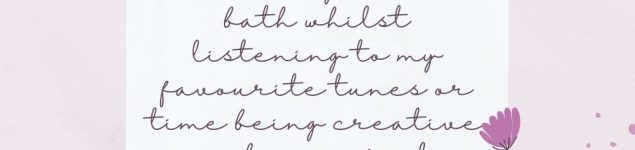 bath whilst
listening to my
favourite tunes or
time being creative